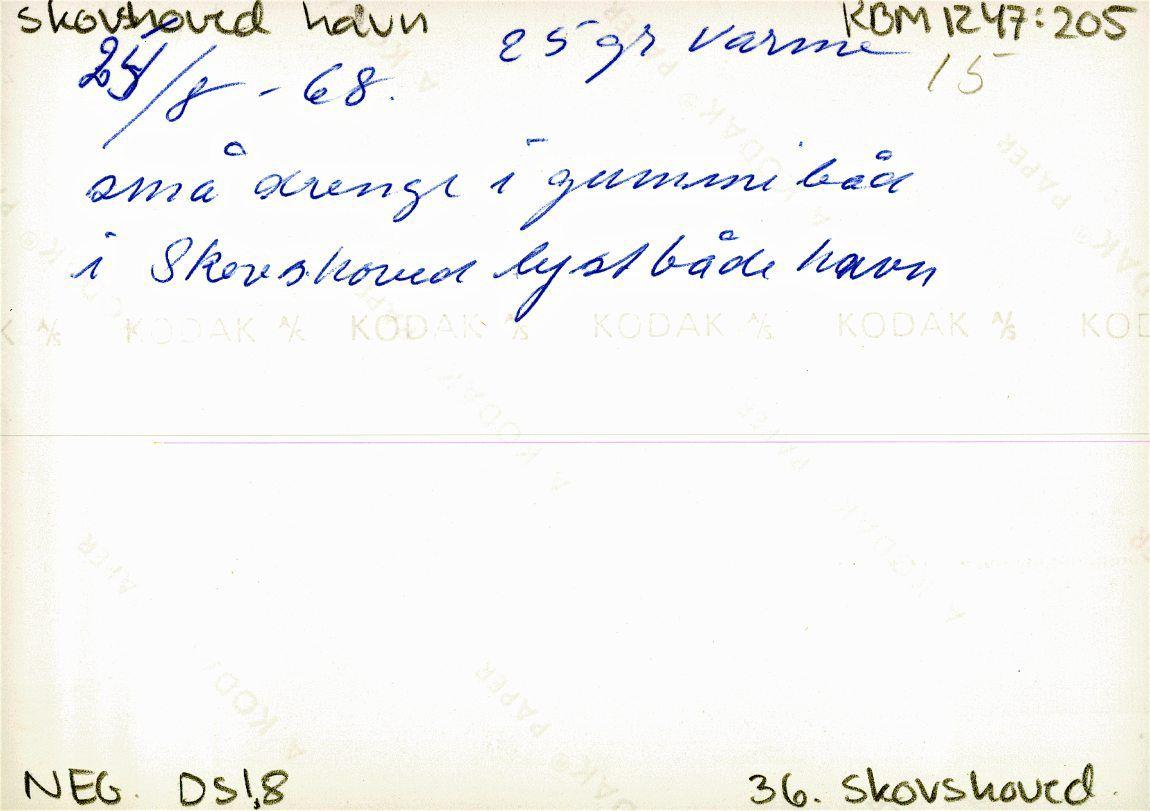 skovshoved havn RBM 1247:205
/8 - 68. 25 gr varme 15
små drenge i gummibåd
i Skovshoved lystbåde havn
KODAK A/S KODAK A/S KODAK A/S KODAK A/S
NEG. DS1,8 36. skovshoved.